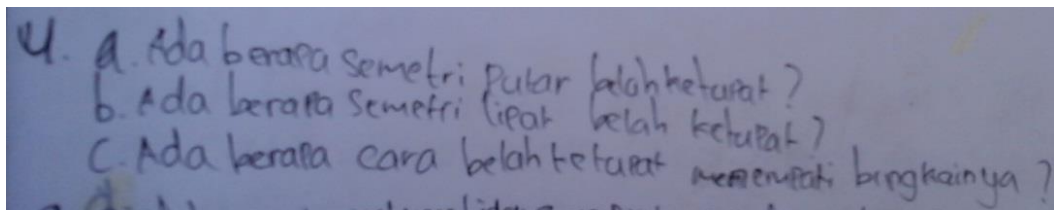 4. a. Ada berapa semetri putar belah ketupat?
b. Ada berapa semetri lipat belah ketupat?
c. Ada berapa cara belah ketupat menempati bingkainya?
d.